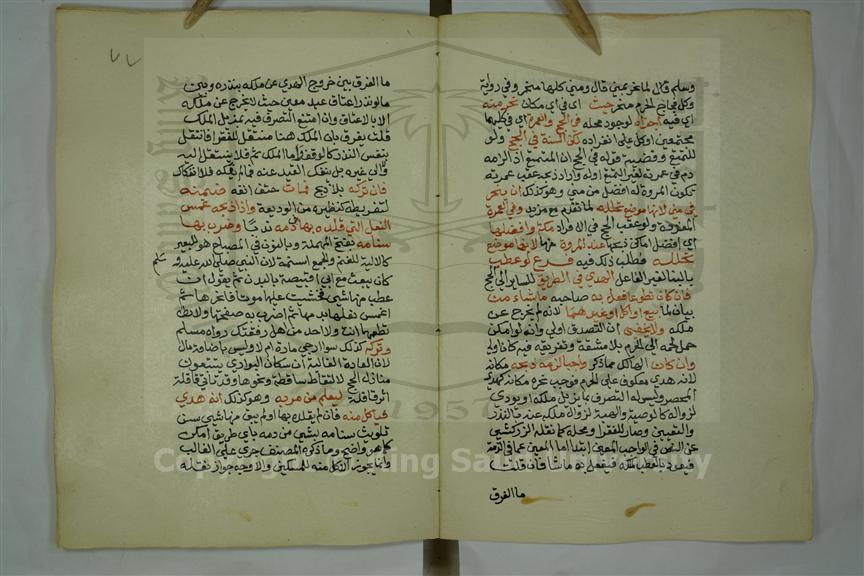 وسلم قال لما نحر بمنى قال ومنى كلها منحر وفي رواية
وكل فجاج الحرم منحر حيث اي في اي مكان نحر منه
اي فيه اجزاه لوجود محله في الحج والعمرة اي في كليهما
مجتمعين او كل على انفراده لكن السنة في الحج ولو
للتمتع وقضية قوله في الحج ان المتمتع اذا لزمه
دم في عمرته لغير التمتع اوله واراد ذبحه عقب عمرته
تكون المروة له افضل من منى وهو كذلك ان ينحر
في منى لانها موضع تحلله لما تقدم مع مزيد وفي العمرة
المفردة ولو عقب الحج في الافراد مكة وافضلها
اي افضل اماكن ذبحها عند المروة منها لانها موضع
تحلله فطلب ذلك فيه فرع لو عطب
بالبنا لغير الفاعل الهدي في الطريق للساير الى الحج
فان كان تطوعا فعل به صاحبه ما شاء من
بيان لما بيع او اكل او غيرهما لانه لم يخرج عن
ملكه ولا يخفى ان التصدق اولى وانه لو امكن
حمل لحمه الى الحرم بلا مشقة وتفريقه فيه كان اولى
وان كان الهالك مما ذكر واجبا لزمه ذبحه مكانه
لانه هدي معكوف على الحرم فوجب نحره مكانه كهدي
المحصر وليس له التصرف بما يزيل ملكه او يودي
لزواله كالوصية والهبة لزوال ملكه عنه بالنذر
والتعيين وصار للفقرا ومحله كما نقله الزركشي
عن النص في الواجب المعين ابتدا اما المعين عما في الذمة
فيعود بالعطب لملكه فيفعل به ما شا فان قلت
ما الفرق
٧٧
ما الفرق بين خروج الهدي عن ملكه بنذره وبين
ما لو نذر اعتاق عبد معين حيث لا يخرج عن ملكه
الا بالاعتاق وان امتنع التصرف فيه بمزيل الملك
قلت يفرق بان الملك هنا منتقل للفقرا فانتقل
بنفس النذر كالوقف واما الملك ثم فلا ينتقل اليه
والى غيره بل ينفك العبد عنه فما لم يفكه فلا انفكاك
فان تركه بلا ذبح فمات حتف انفه ضمنه
لتفريطه كنظيره من الوديعة واذا ذبحه غمس
النعل التي قلده بها في دمه ندبا وضرب بها
سنامه بفتح المهملة وبالنون في المصباح هو للبعير
كالالية للغنم والجمع اسنمة لان النبي صلى الله عليه وسلم
كان يبعث مع ابي قبيصة بالبدن ثم يقول ان
عطب منها شي فخشيت عليها موتا فانحرها ثم
اغمس نعلها بدمها ثم اضرب به صفحتها ولا
تطعمها انت ولا احد من اهل رفقتك رواه مسلم
وتركه كذلك سوا رجي مارة ام لا وليس باضاعة مال
لان العادة الغالبة ان سكان البوادي يتتبعون
منازل الحج لالتقاط ساقطة ونحوها وقد تاتي قافلة
اثر قافلة ليعلم من مر به وهو كذلك انه هدي
فياكل منه فان لم يقلده بها او لم يبق منها شي سن
تلويث سنامه بشي من دمه باي طريق امكن
كما هو واضح وما ذكره المصنف جري على الغالب
وانما يجوز الاكل منه للمساكين والاوجه جواز نقله
1957
Copyright © King Saud University